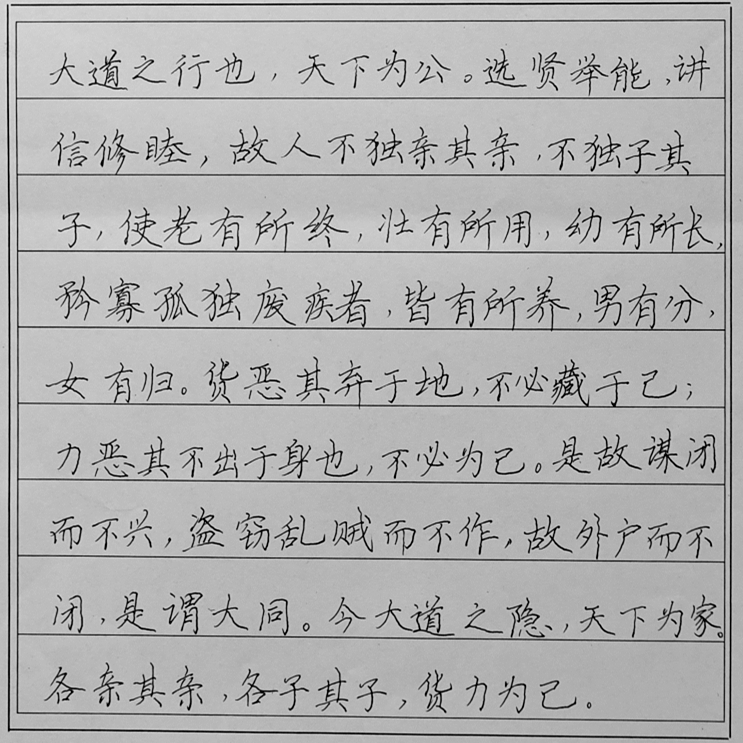 大道之行也，天下为公。选贤举能，讲
信修睦，故人不独亲其亲，不独子其
子，使老有所终，壮有所用，幼有所长，
矜寡孤独废疾者，皆有所养，男有分，
女有归。货恶其弃于地，不必藏于己；
力恶其不出于身也，不必为己。是故谋闭
而不兴，盗窃乱贼而不作，故外户而不
闭，是谓大同。今大道之隐，天下为家。
各亲其亲，各子其子，货力为己。